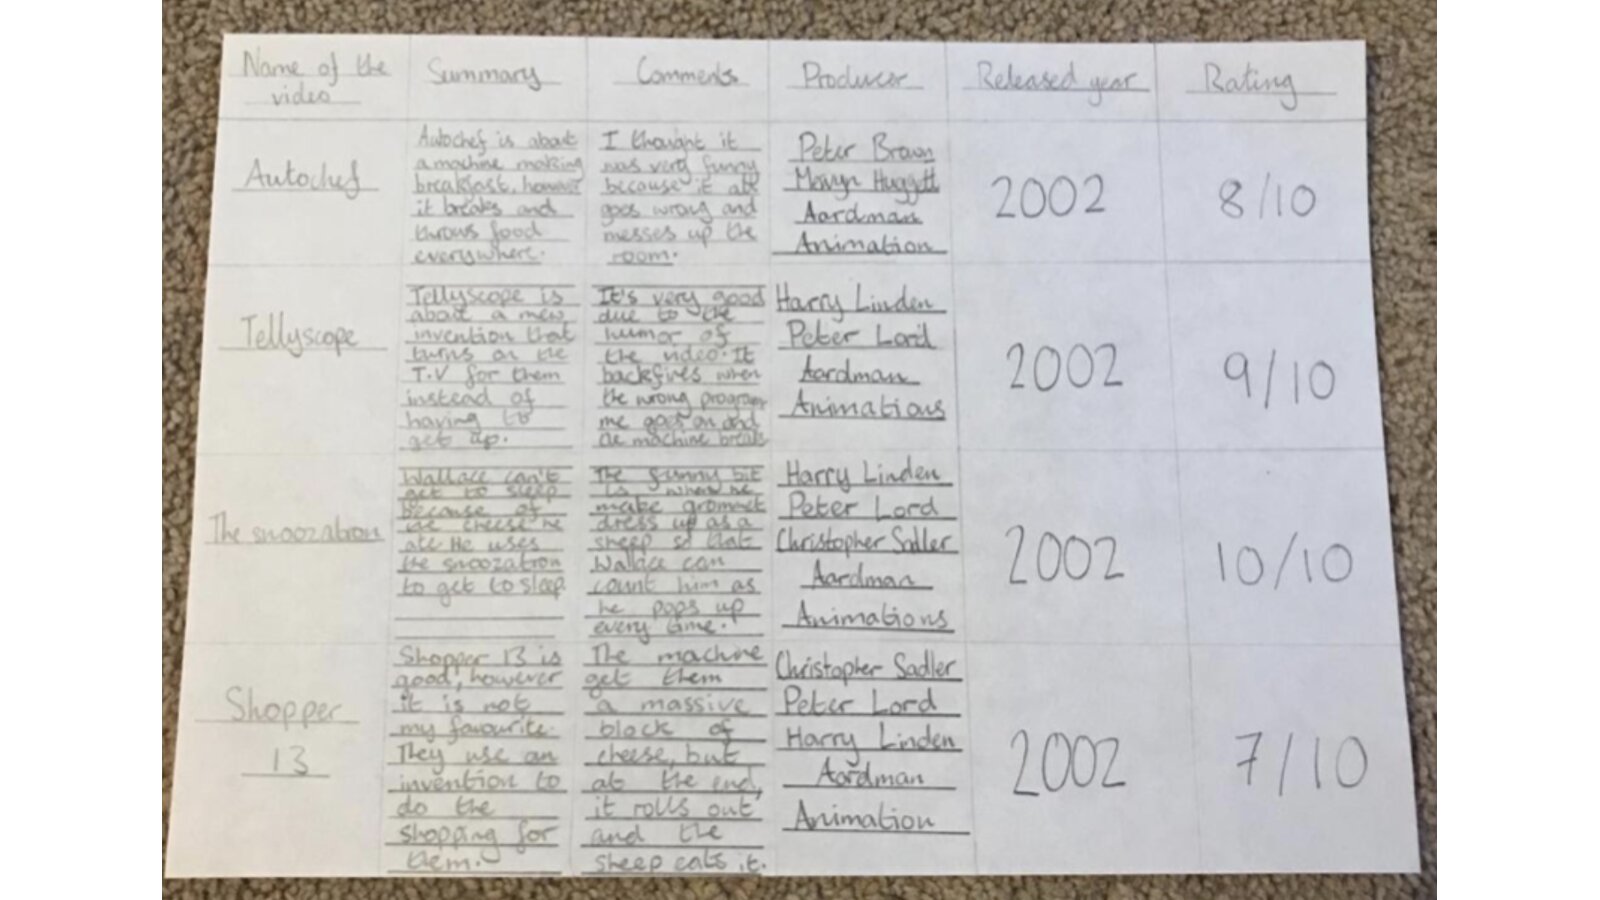 Name of the
video
Summary
Comments
Producer
Released year
Rating
Autochef
Autochef is about
a machine making
breakfast, however
it breaks and
throws food
everywhere.
I thought it
was very funny
because it all
goes wrong and
messes up the
room.
Peter Brown
Huggett
Aardman
Animation
2002
8/10
Tellyscope
Tellyscope is
about a new
invention that
turns on the
T.V for them
instead of
having to
get up.
It's very good
due to the
humor of
the video. It
backfires when
the wrong program
me goes on and
the machine breaks
Harry Linden
Peter Lord
Aardman
Animations
2002
9/10
The snoozatron
Wallace can't
get to sleep
because of
the cheese he
ate. He uses
the snoozatron
to get to sleep
The funny bit
is when he
make grommet
dress up as a
sheep so that
Wallace can
count him as
he pops up
every time.
Harry Linden
Peter Lord
Christopher Sadler
Aardman
Animations
2002
10/10
Shopper
13
Shopper 13 is
good, however
it is not
my favourite.
They use an
invention to
do the
shopping for
them.
The machine
get them
a massive
block of
cheese, but
at the end,
it rolls out
and the
sheep eats it.
Christopher Sadler
Peter Lord
Harry Linden
Aardman
Animation
2002
7/10